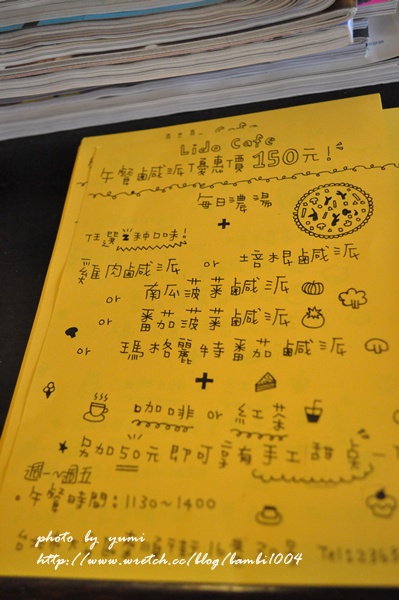 Lido Cafe
午餐鹹派優惠價 150元!
每日濃湯
+
任選 種口味!
雞肉鹹派 or 培根鹹派
or 南瓜菠菜鹹派
or 蕃茄菠菜鹹派
or 瑪格麗特蕃茄鹹派
+
咖啡 or 紅茶
★另加50元即可享有手工甜桌一
週一~週五
•午餐時間:1130~1400
Tel
photo by yumi
http://www.wretch.cc/blog/bambi1004